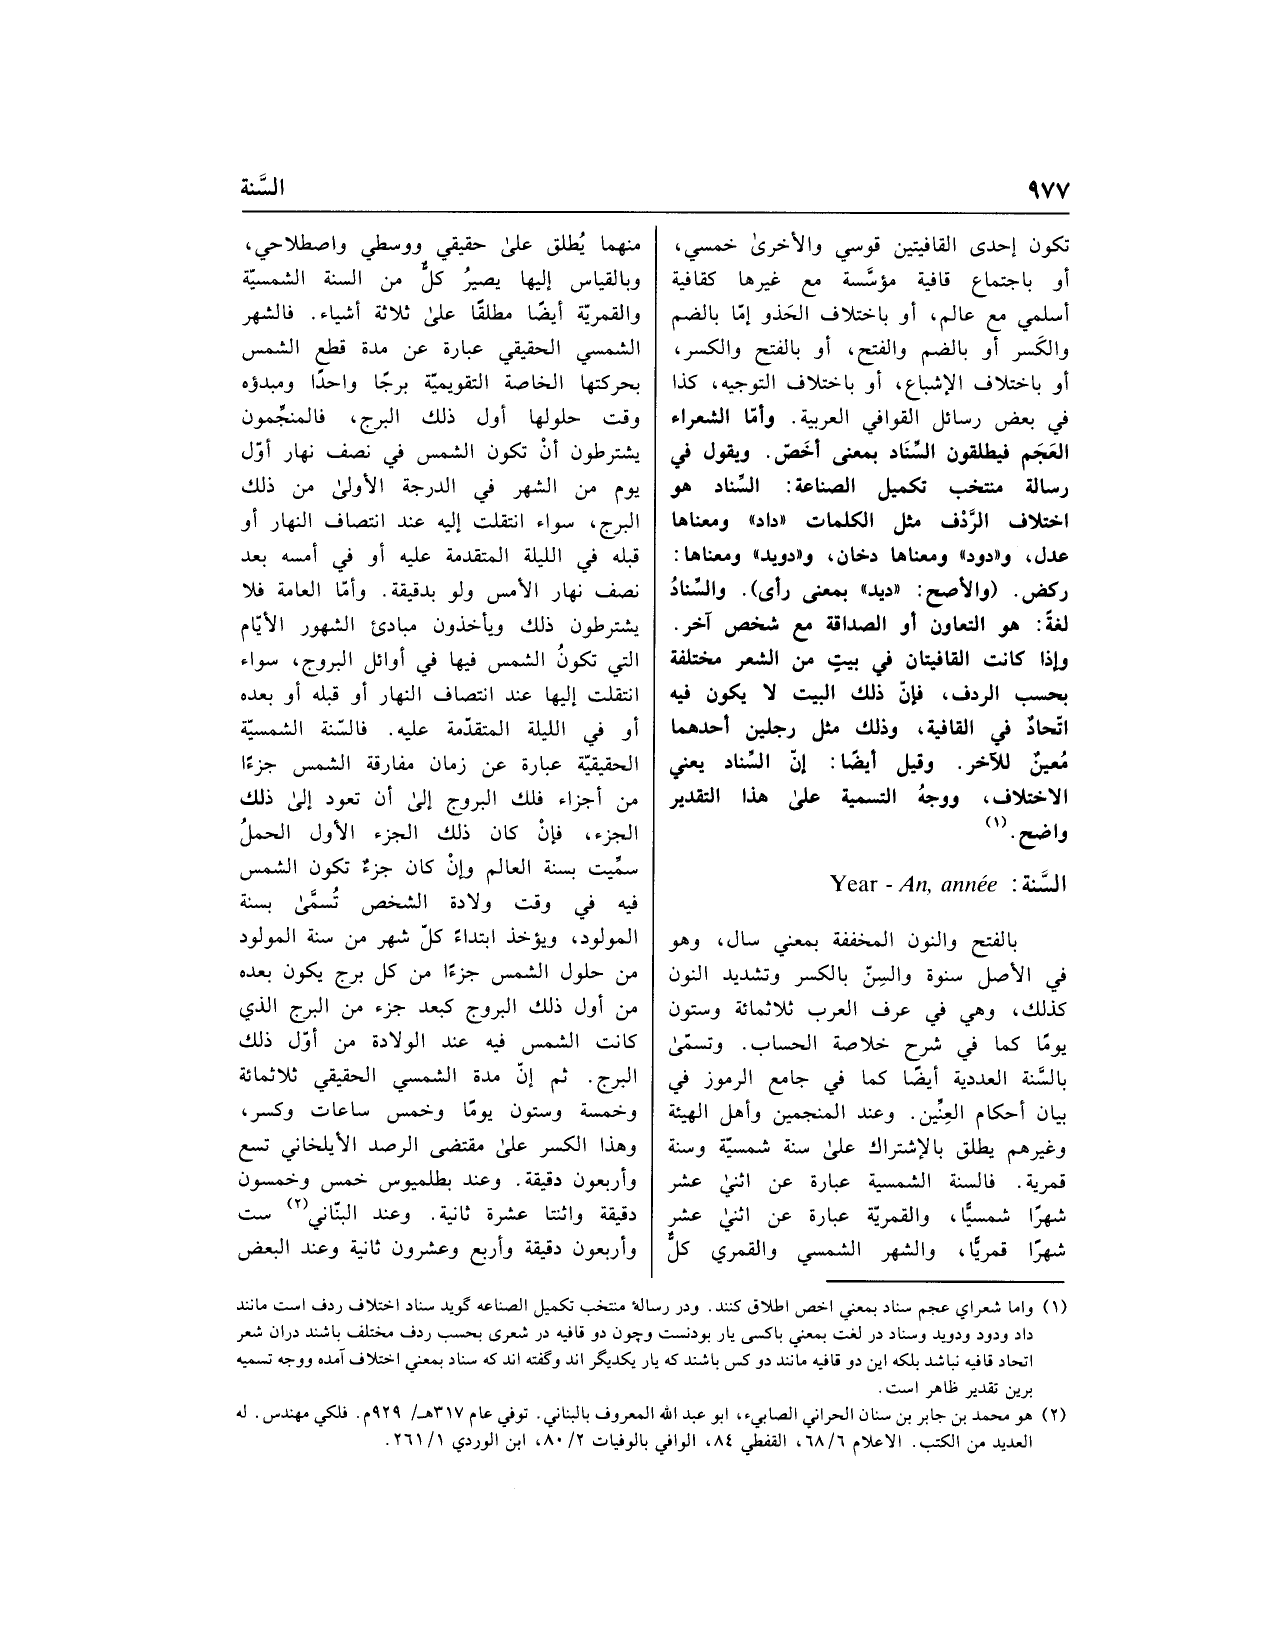 ٩٧٧
السَّنة
تكون إحدى القافيتين قوسي والأخرىٰ خمسي،
أو باجتماع قافية مؤسَّسة مع غيرها كقافية
أسلمي مع عالم، أو باختلاف الحَذو إمّا بالضم
والكَسر أو بالضم والفتح، أو بالفتح والكسر،
أو باختلاف الإشباع، أو باختلاف التوجيه، كذا
في بعض رسائل القوافي العربية. وأمّا الشعراء
العَجَم فيطلقون السِّنَاد بمعنى أخَصّ. ويقول في
رسالة منتخب تكميل الصناعة: السِّناد هو
اختلاف الرَّدْف مثل الكلمات «داد» ومعناها
عدل، و«دود» ومعناها دخان، و«دويد» ومعناها:
ركض. (والأصح: «ديد» بمعنى رأى). والسِّنادُ
لغةً: هو التعاون أو الصداقة مع شخص آخر.
وإذا كانت القافيتان في بيتٍ من الشعر مختلفة
بحسب الردف، فإنّ ذلك البيت لا يكون فيه
اتّحادٌ في القافية، وذلك مثل رجلين أحدهما
مُعينٌ للآخر. وقيل أيضًا: إنّ السِّناد يعني
الاختلاف، ووجهُ التسمية علىٰ هذا التقدير
واضح.(١)
السَّنة: Year - An, année
بالفتح والنون المخففة بمعني سال، وهو
في الأصل سنوة والسِنّ بالكسر وتشديد النون
كذلك، وهي في عرف العرب ثلاثمائة وستون
يومًا كما في شرح خلاصة الحساب. وتسمّىٰ
بالسَّنة العددية أيضًا كما في جامع الرموز في
بيان أحكام العِنِّين. وعند المنجمين وأهل الهيئة
وغيرهم يطلق بالإشتراك علىٰ سنة شمسيّة وسنة
قمرية. فالسنة الشمسية عبارة عن اثنىٰ عشر
شهرًا شمسيًّا، والقمريّة عبارة عن اثنىٰ عشر
شهرًا قمريًّا، والشهر الشمسي والقمري كلٌّ
منهما يُطلق علىٰ حقيقي ووسطي واصطلاحي،
وبالقياس إليها يصيرُ كلٌّ من السنة الشمسيّة
والقمريّة أيضًا مطلقًا علىٰ ثلاثة أشياء. فالشهر
الشمسي الحقيقي عبارة عن مدة قطع الشمس
بحركتها الخاصة التقويميّة برجًا واحدًا ومبدؤه
وقت حلولها أول ذلك البرج، فالمنجِّمون
يشترطون أنْ تكون الشمس في نصف نهار أوّل
يوم من الشهر في الدرجة الأولىٰ من ذلك
البرج، سواء انتقلت إليه عند انتصاف النهار أو
قبله في الليلة المتقدمة عليه أو في أمسه بعد
نصف نهار الأمس ولو بدقيقة. وأمّا العامة فلا
يشترطون ذلك ويأخذون مبادئ الشهور الأيّام
التي تكونُ الشمس فيها في أوائل البروج، سواء
انتقلت إليها عند انتصاف النهار أو قبله أو بعده
أو في الليلة المتقدّمة عليه. فالسّنة الشمسيّة
الحقيقيّة عبارة عن زمان مفارقة الشمس جزءًا
من أجزاء فلك البروج إلىٰ أن تعود إلىٰ ذلك
الجزء، فإنْ كان ذلك الجزء الأول الحملُ
سمِّيت بسنة العالم وإنْ كان جزءٌ تكون الشمس
فيه في وقت ولادة الشخص تُسمَّىٰ بسنة
المولود، ويؤخذ ابتداءً كلّ شهر من سنة المولود
من حلول الشمس جزءًا من كل برج يكون بعده
من أول ذلك البروج كبعد جزء من البرج الذي
كانت الشمس فيه عند الولادة من أوّل ذلك
البرج. ثم إنّ مدة الشمسي الحقيقي ثلاثمائة
وخمسة وستون يومًا وخمس ساعات وكسر،
وهذا الكسر علىٰ مقتضى الرصد الأيلخاني تسع
وأربعون دقيقة. وعند بطلميوس خمس وخمسون
دقيقة واثنتا عشرة ثانية. وعند البتّاني(٢) ست
وأربعون دقيقة وأربع وعشرون ثانية وعند البعض
(١) واما شعراي عجم سناد بمعني اخص اطلاق كنند. ودر رسالۀ منتخب تكميل الصناعه گويد سناد اختلاف ردف است مانند
داد ودود ودويد وسناد در لغت بمعني باكسى يار بودنست وچون دو قافيه در شعرى بحسب ردف مختلف باشند دران شعر
اتحاد قافيه نباشد بلكه اين دو قافيه مانند دو كس باشند كه يار يكديگر اند وگفته اند كه سناد بمعني اختلاف آمده ووجه تسميه
برين تقدير ظاهر است.
(٢) هو محمد بن جابر بن سنان الحراني الصابيء، ابو عبد الله المعروف بالبتاني. توفي عام ٣١٧هـ/ ٩٢٩م. فلكي مهندس. له
العديد من الكتب. الاعلام ٦/ ٦٨، القفطي ٨٤، الوافي بالوفيات ٢/ ٨٠، ابن الوردي ١/ ٢٦١.